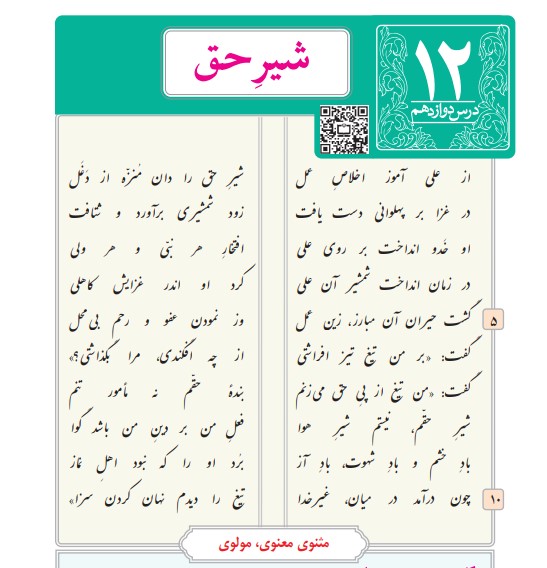 ۱۲
درس دوازدهم
شیرِ حق
از علی آموز اخلاصِ عمل
شیرِ حق را دان مُنَزّه از دَغَل
در غزا بر پهلوانی دست یافت
زود شمشیری برآورد و شتافت
او خَدو انداخت بر روی علی
افتخارِ هر نبّی و هر ولی
در زمان انداخت شمشیر آن علی
کرد او اندر غزایش کاهلی
۵
گشت حیران آن مبارز، زین عمل
وز نمودن عفو و رحم بی‌محل
گفت: «بر من تیغِ تیز افراشتی
از چه افکندی، مرا بگذاشتی؟»
گفت: «من تیغ از پیِ حق می‌زنم
بندهٔ حقّم نه مأمور تنم
شیرِ حقّم، نیستم شیرِ هوا
فعلِ من بر دینِ من باشد گوا
بادِ خشم و بادِ شهوت، بادِ آز
بُرد او را که نبود اهلِ نماز
۱۰
چون درآمد در میان، غیرِ خدا
تیغ را دیدم نهان کردن سزا»
مثنوی معنوی، مولوی